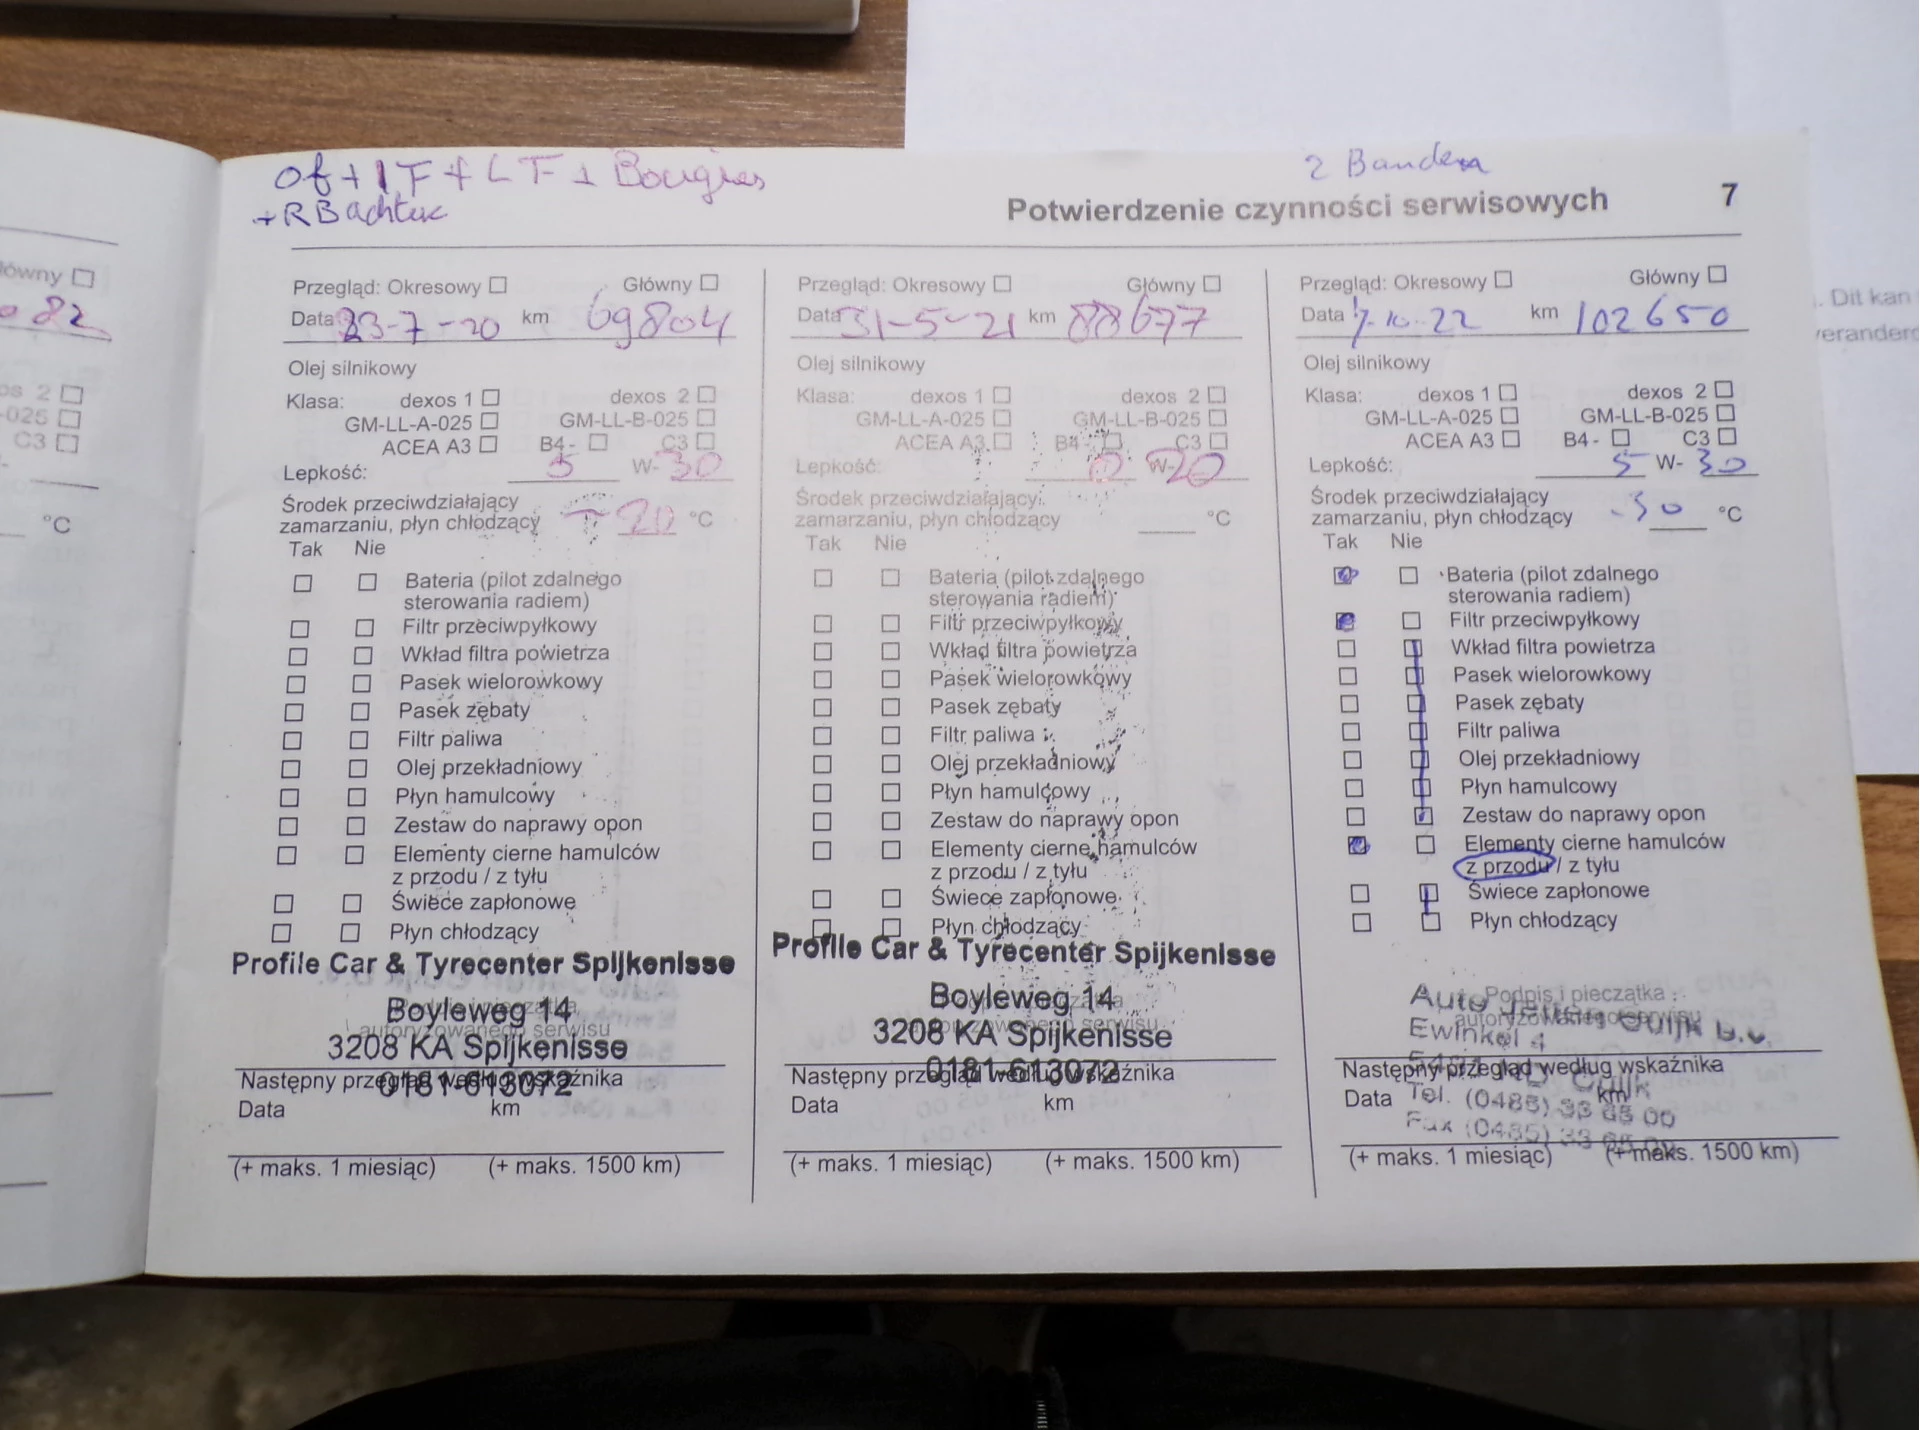 Of + IF + LF + Bougies
+ RB achter
2 Banden
Potwierdzenie czynności serwisowych 7
Główny
82
os 2
-025
C3
°C
Przegląd: Okresowy Główny
Data 23-7-20 km 69804
Olej silnikowy
Klasa: dexos 1 dexos 2
GM-LL-A-025 GM-LL-B-025
ACEA A3 B4- C3
Lepkość: 5 W- 30
Środek przeciwdziałający
zamarzaniu, płyn chłodzący -20 °C
Tak Nie
Bateria (pilot zdalnego
sterowania radiem)
Filtr przeciwpyłkowy
Wkład filtra powietrza
Pasek wielorowkowy
Pasek zębaty
Filtr paliwa
Olej przekładniowy
Płyn hamulcowy
Zestaw do naprawy opon
Elementy cierne hamulców
z przodu / z tyłu
Świece zapłonowe
Płyn chłodzący
Profile Car & Tyrecenter Spijkenisse
Boyleweg 14
autoryzowanego serwisu
3208 KA Spijkenisse
0181-613072
Następny przegląd według wskaźnika
Data km
(+ maks. 1 miesiąc) (+ maks. 1500 km)
Przegląd: Okresowy Główny
Data 31-5-21 km 88677
Olej silnikowy
Klasa: dexos 1 dexos 2
GM-LL-A-025 GM-LL-B-025
ACEA A3 B4- C3
Lepkość: 0 W- 20
Środek przeciwdziałający
zamarzaniu, płyn chłodzący °C
Tak Nie
Bateria (pilot zdalnego
sterowania radiem)
Filtr przeciwpyłkowy
Wkład filtra powietrza
Pasek wielorowkowy
Pasek zębaty
Filtr paliwa
Olej przekładniowy
Płyn hamulcowy
Zestaw do naprawy opon
Elementy cierne hamulców
z przodu / z tyłu
Świece zapłonowe
Płyn chłodzący
Profile Car & Tyrecenter Spijkenisse
Boyleweg 14
3208 KA Spijkenisse
0181-613072
Następny przegląd według wskaźnika
Data km
(+ maks. 1 miesiąc) (+ maks. 1500 km)
Przegląd: Okresowy Główny
Data 7-10-22 km 102650
Olej silnikowy
Klasa: dexos 1 dexos 2
GM-LL-A-025 GM-LL-B-025
ACEA A3 B4- C3
Lepkość: 5 W- 30
Środek przeciwdziałający
zamarzaniu, płyn chłodzący -30 °C
Tak Nie
Bateria (pilot zdalnego
sterowania radiem)
Filtr przeciwpyłkowy
Wkład filtra powietrza
Pasek wielorowkowy
Pasek zębaty
Filtr paliwa
Olej przekładniowy
Płyn hamulcowy
Zestaw do naprawy opon
Elementy cierne hamulców
z przodu / z tyłu
Świece zapłonowe
Płyn chłodzący
Podpis i pieczątka
autoryzowanego serwisu
Auto Cuijk b.v.
Ewinkel 4
Cuijk
Tel. (0485) 33 65 00
Fax (0485) 33
Następny przegląd według wskaźnika
Data km
(+ maks. 1 miesiąc) (+ maks. 1500 km)
. Dit kan